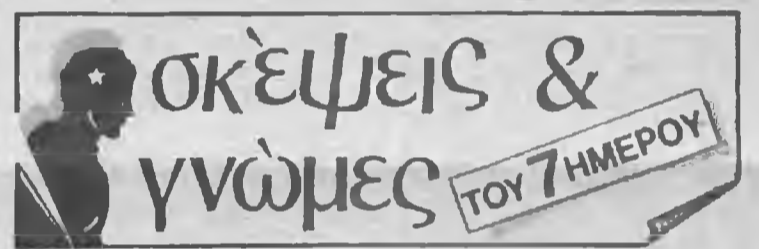 σκὲψεις &
γνὼμες
ΤΟΥ 7 ΗΜΕΡΟΥ